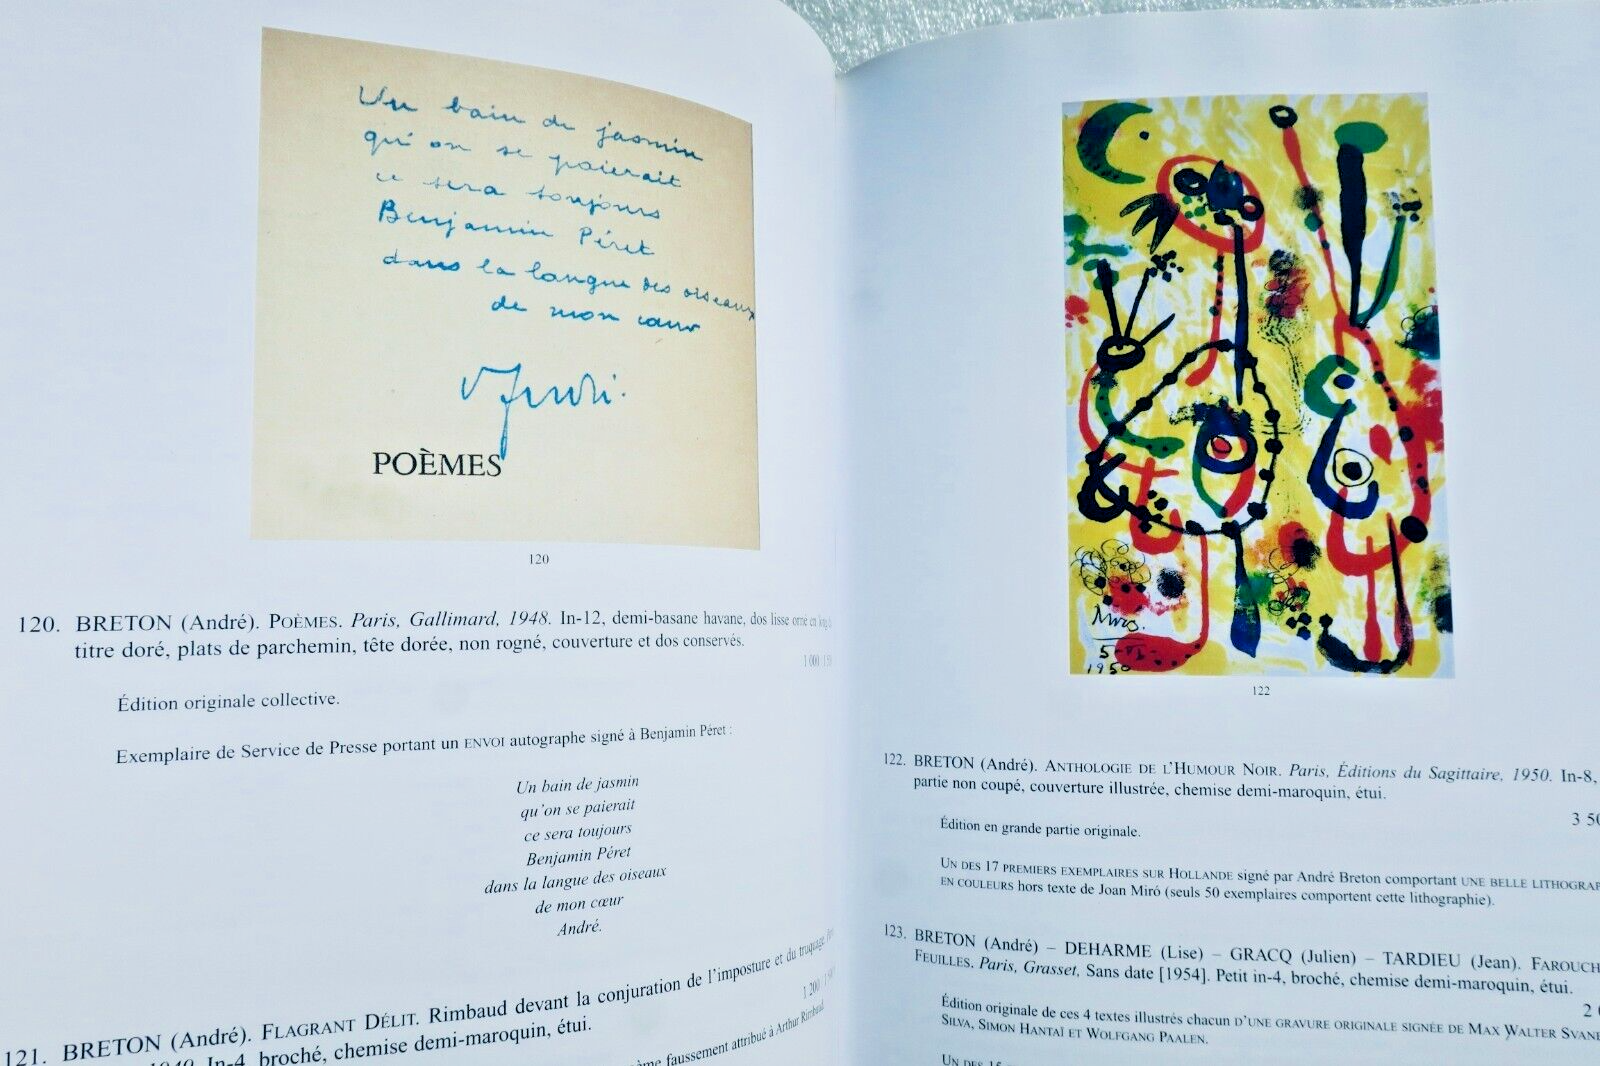 Un bain de jasmin
qu'on se paierait
ce sera toujours
Benjamin Péret
dans la langue des oiseaux
de mon cœur
POÈMES
120
120. BRETON (André). POÈMES. Paris, Gallimard, 1948. In-12, demi-basane havane, dos lisse orné en long,
titre doré, plats de parchemin, tête dorée, non rogné, couverture et dos conservés.
Édition originale collective.
Exemplaire de Service de Presse portant un ENVOI autographe signé à Benjamin Péret :
Un bain de jasmin
qu'on se paierait
ce sera toujours
Benjamin Péret
dans la langue des oiseaux
de mon cœur
André.
121. BRETON (André). FLAGRANT DÉLIT. Rimbaud devant la conjuration de l'imposture et du truquage.
1 200
1949. In-4, broché, chemise demi-maroquin, étui.
faussement attribué à Arthur Rimbaud
Miró.
5-VI-
1950
122
122. BRETON (André). ANTHOLOGIE DE L'HUMOUR NOIR. Paris, Éditions du Sagittaire, 1950. In-8,
partie non coupé, couverture illustrée, chemise demi-maroquin, étui.
3 50
Édition en grande partie originale.
UN DES 17 PREMIERS EXEMPLAIRES SUR HOLLANDE signé par André Breton comportant UNE BELLE LITHOGRA
EN COULEURS hors texte de Joan Miró (seuls 50 exemplaires comportent cette lithographie).
123. BRETON (André) – DEHARME (Lise) – GRACQ (Julien) – TARDIEU (Jean). FAROUCH
FEUILLES. Paris, Grasset, Sans date [1954]. Petit in-4, broché, chemise demi-maroquin, étui.
2
Édition originale de ces 4 textes illustrés chacun D'UNE GRAVURE ORIGINALE SIGNÉE DE MAX WALTER SVANB
SILVA, SIMON HANTAÏ ET WOLFGANG PAALEN.
UN DES 15